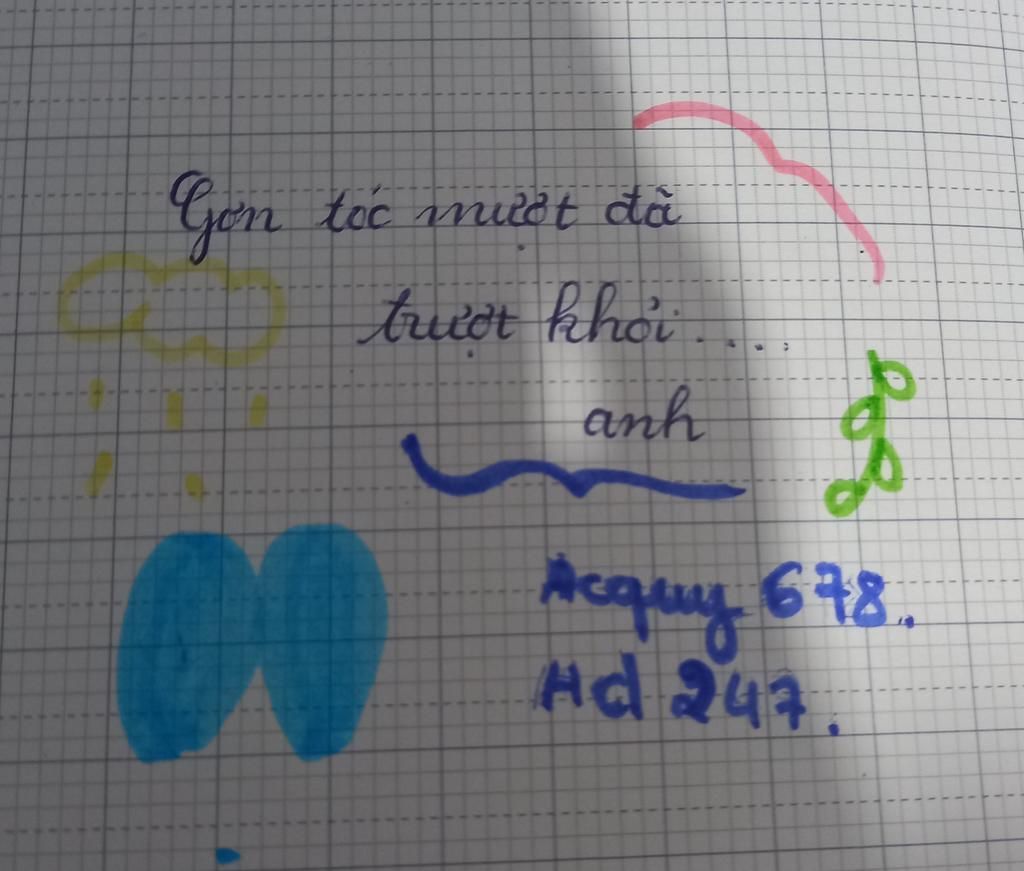 Gợn tóc mượt đã
trượt khỏi....
anh
Acquy 678.
Hd 247.